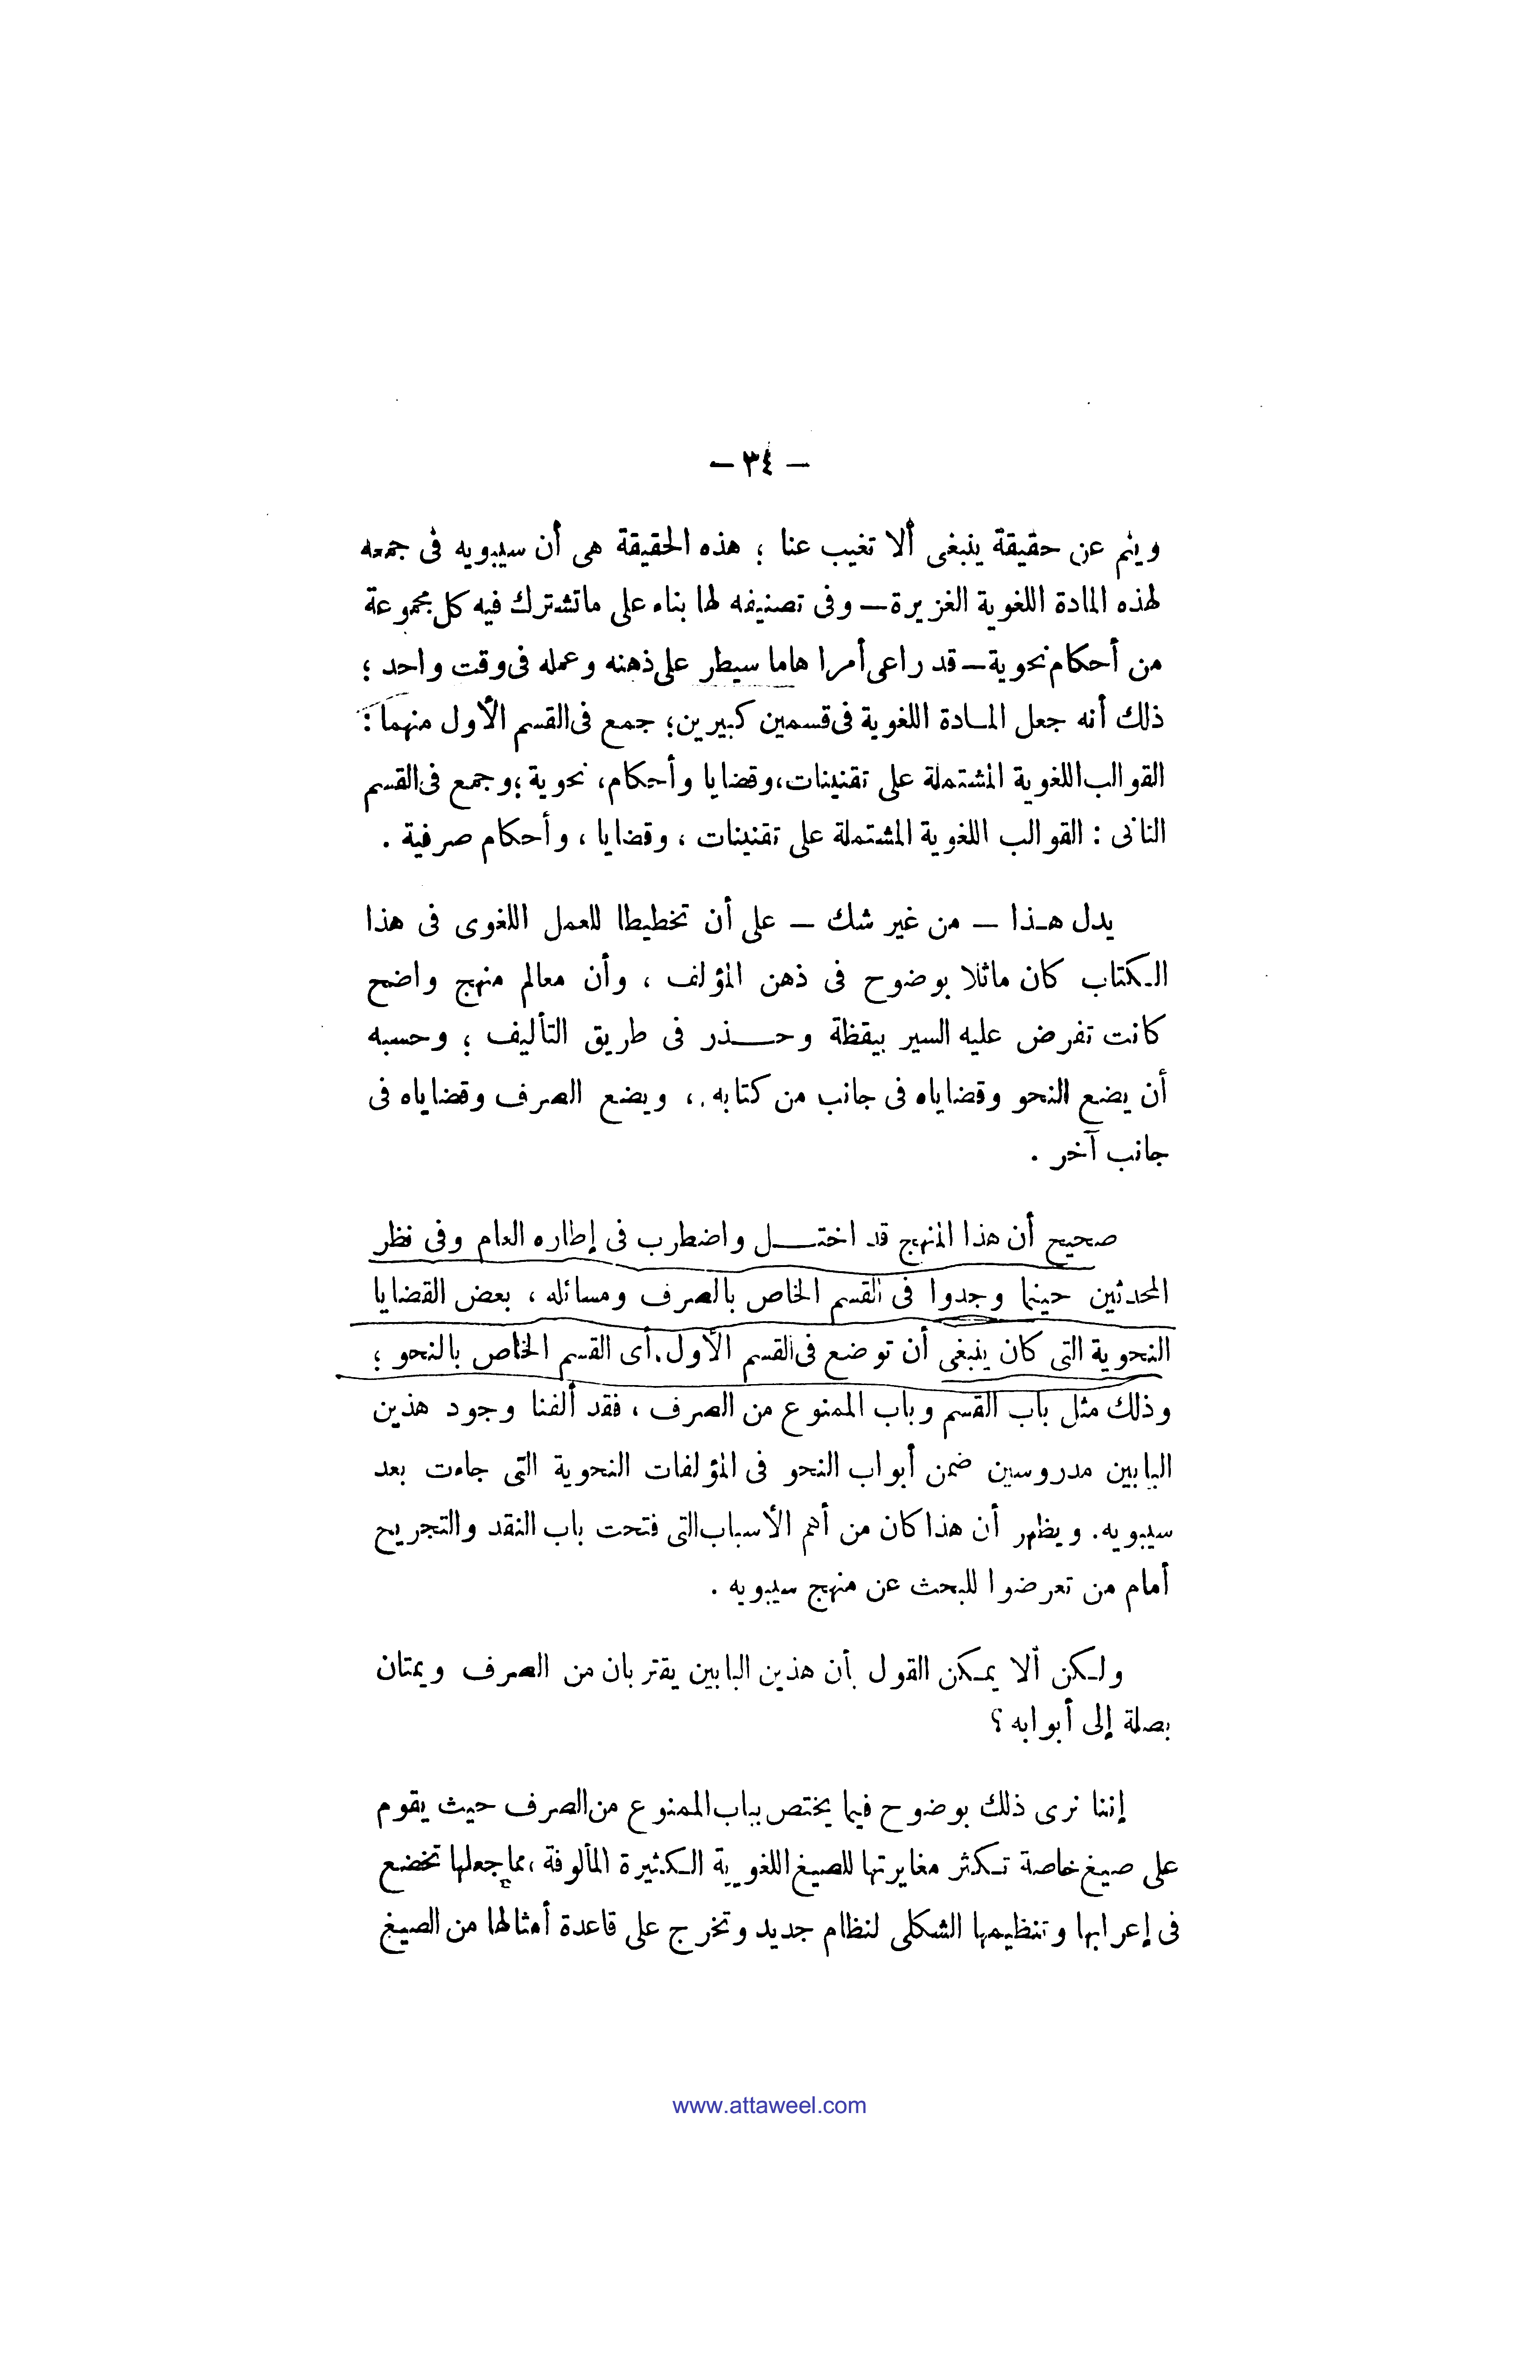 — ٣٤ —
وينم عن حقيقة ينبغى ألا تغيب عنا ؛ هذه الحقيقة هى أن سيبويه فى جمعه
لهذه المادة اللغوية الغزيرة — وفى تصنيفه لها بناء على ماتشترك فيه كل مجموعة
من أحكام نحوية — قد راعى أمرا هاما سيطر على ذهنه وعمله فى وقت واحد ؛
ذلك أنه جعل المادة اللغوية فى قسمين كبيرين؛ جمع فى القسم الأول منهما :
القوالب اللغوية المشتملة على تقنينات، وقضايا وأحكام، نحوية ؛ وجمع فى القسم
الثانى : القوالب اللغوية المشتملة على تقنينات ، وقضايا ، وأحكام صرفية .
يدل هذا — من غير شك — على أن تخطيطا للعمل اللغوى فى هذا
الكتاب كان ماثلا بوضوح فى ذهن المؤلف ، وأن معالم منهج واضح
كانت تفرض عليه السير بيقظة وحذر فى طريق التأليف ؛ وحسبه
أن يضع النحو وقضاياه فى جانب من كتابه ، ويضع الصرف وقضاياه فى
جانب آخر .
صحيح أن هذا المنهج قد اختل واضطرب فى إطاره العام وفى نظر
المحدثين حينما وجدوا فى القسم الخاص بالصرف ومسائله ، بعض القضايا
النحوية التى كان ينبغى أن توضع فى القسم الأول . أى القسم الخاص بالنحو ؛
وذلك مثل باب القسم وباب الممنوع من الصرف ، فقد ألفنا وجود هذين
البابين مدروسين ضمن أبواب النحو فى المؤلفات النحوية التى جاءت بعد
سيبويه . ويظهر أن هذا كان من أهم الأسباب التى فتحت باب النقد والتجريح
أمام من تعرضوا للبحث عن منهج سيبويه .
ولكن ألا يمكن القول بأن هذين البابين يقتربان من الصرف ويمتان
بصلة إلى أبوابه ؟
إننا نرى ذلك بوضوح فيما يختص بباب الممنوع من الصرف حيث يقوم
على صيغ خاصة تكثر مغايرتها للصيغ اللغوية الكثيرة المألوفة ، مما جعلها تخضع
فى إعرابها وتنظيمها الشكلى لنظام جديد وتخرج على قاعدة أمثالها من الصيغ
www.attaweel.com